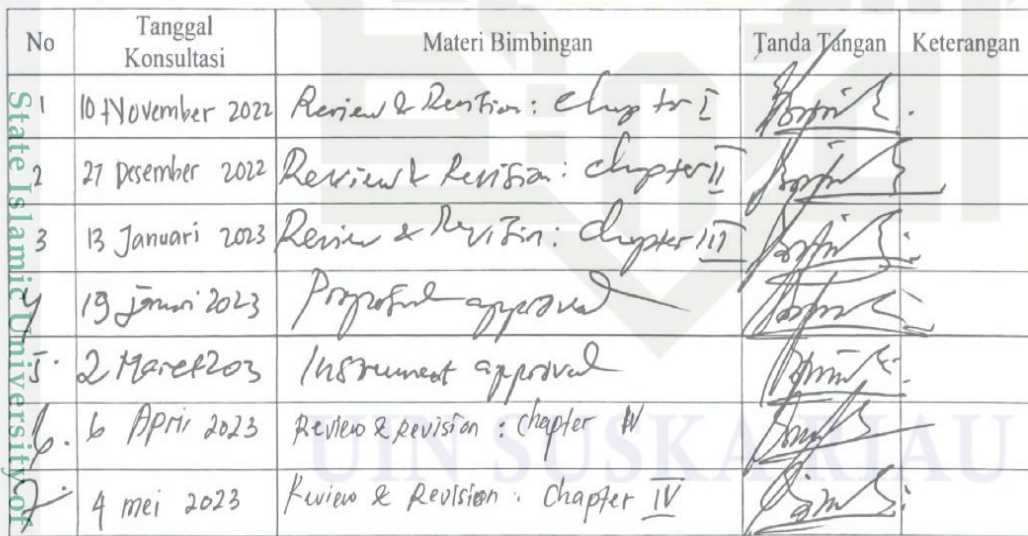 No Tanggal Konsultasi Materi Bimbingan Tanda Tangan Keterangan
1 10 November 2022 Review & Revition: Chapter I
2 27 Desember 2022 Review & Revision: Chapter II
3 13 Januari 2023 Review & Revision: Chapter III
4 19 Januari 2023 Proposal approval
5. 2 Maret 203 Instrument approval
6. 6 April 2023 Review & Revision : Chapter IV
7. 4 mei 2023 Review & Revision : Chapter IV
State Islamic University of
UIN SUSKA RIAU